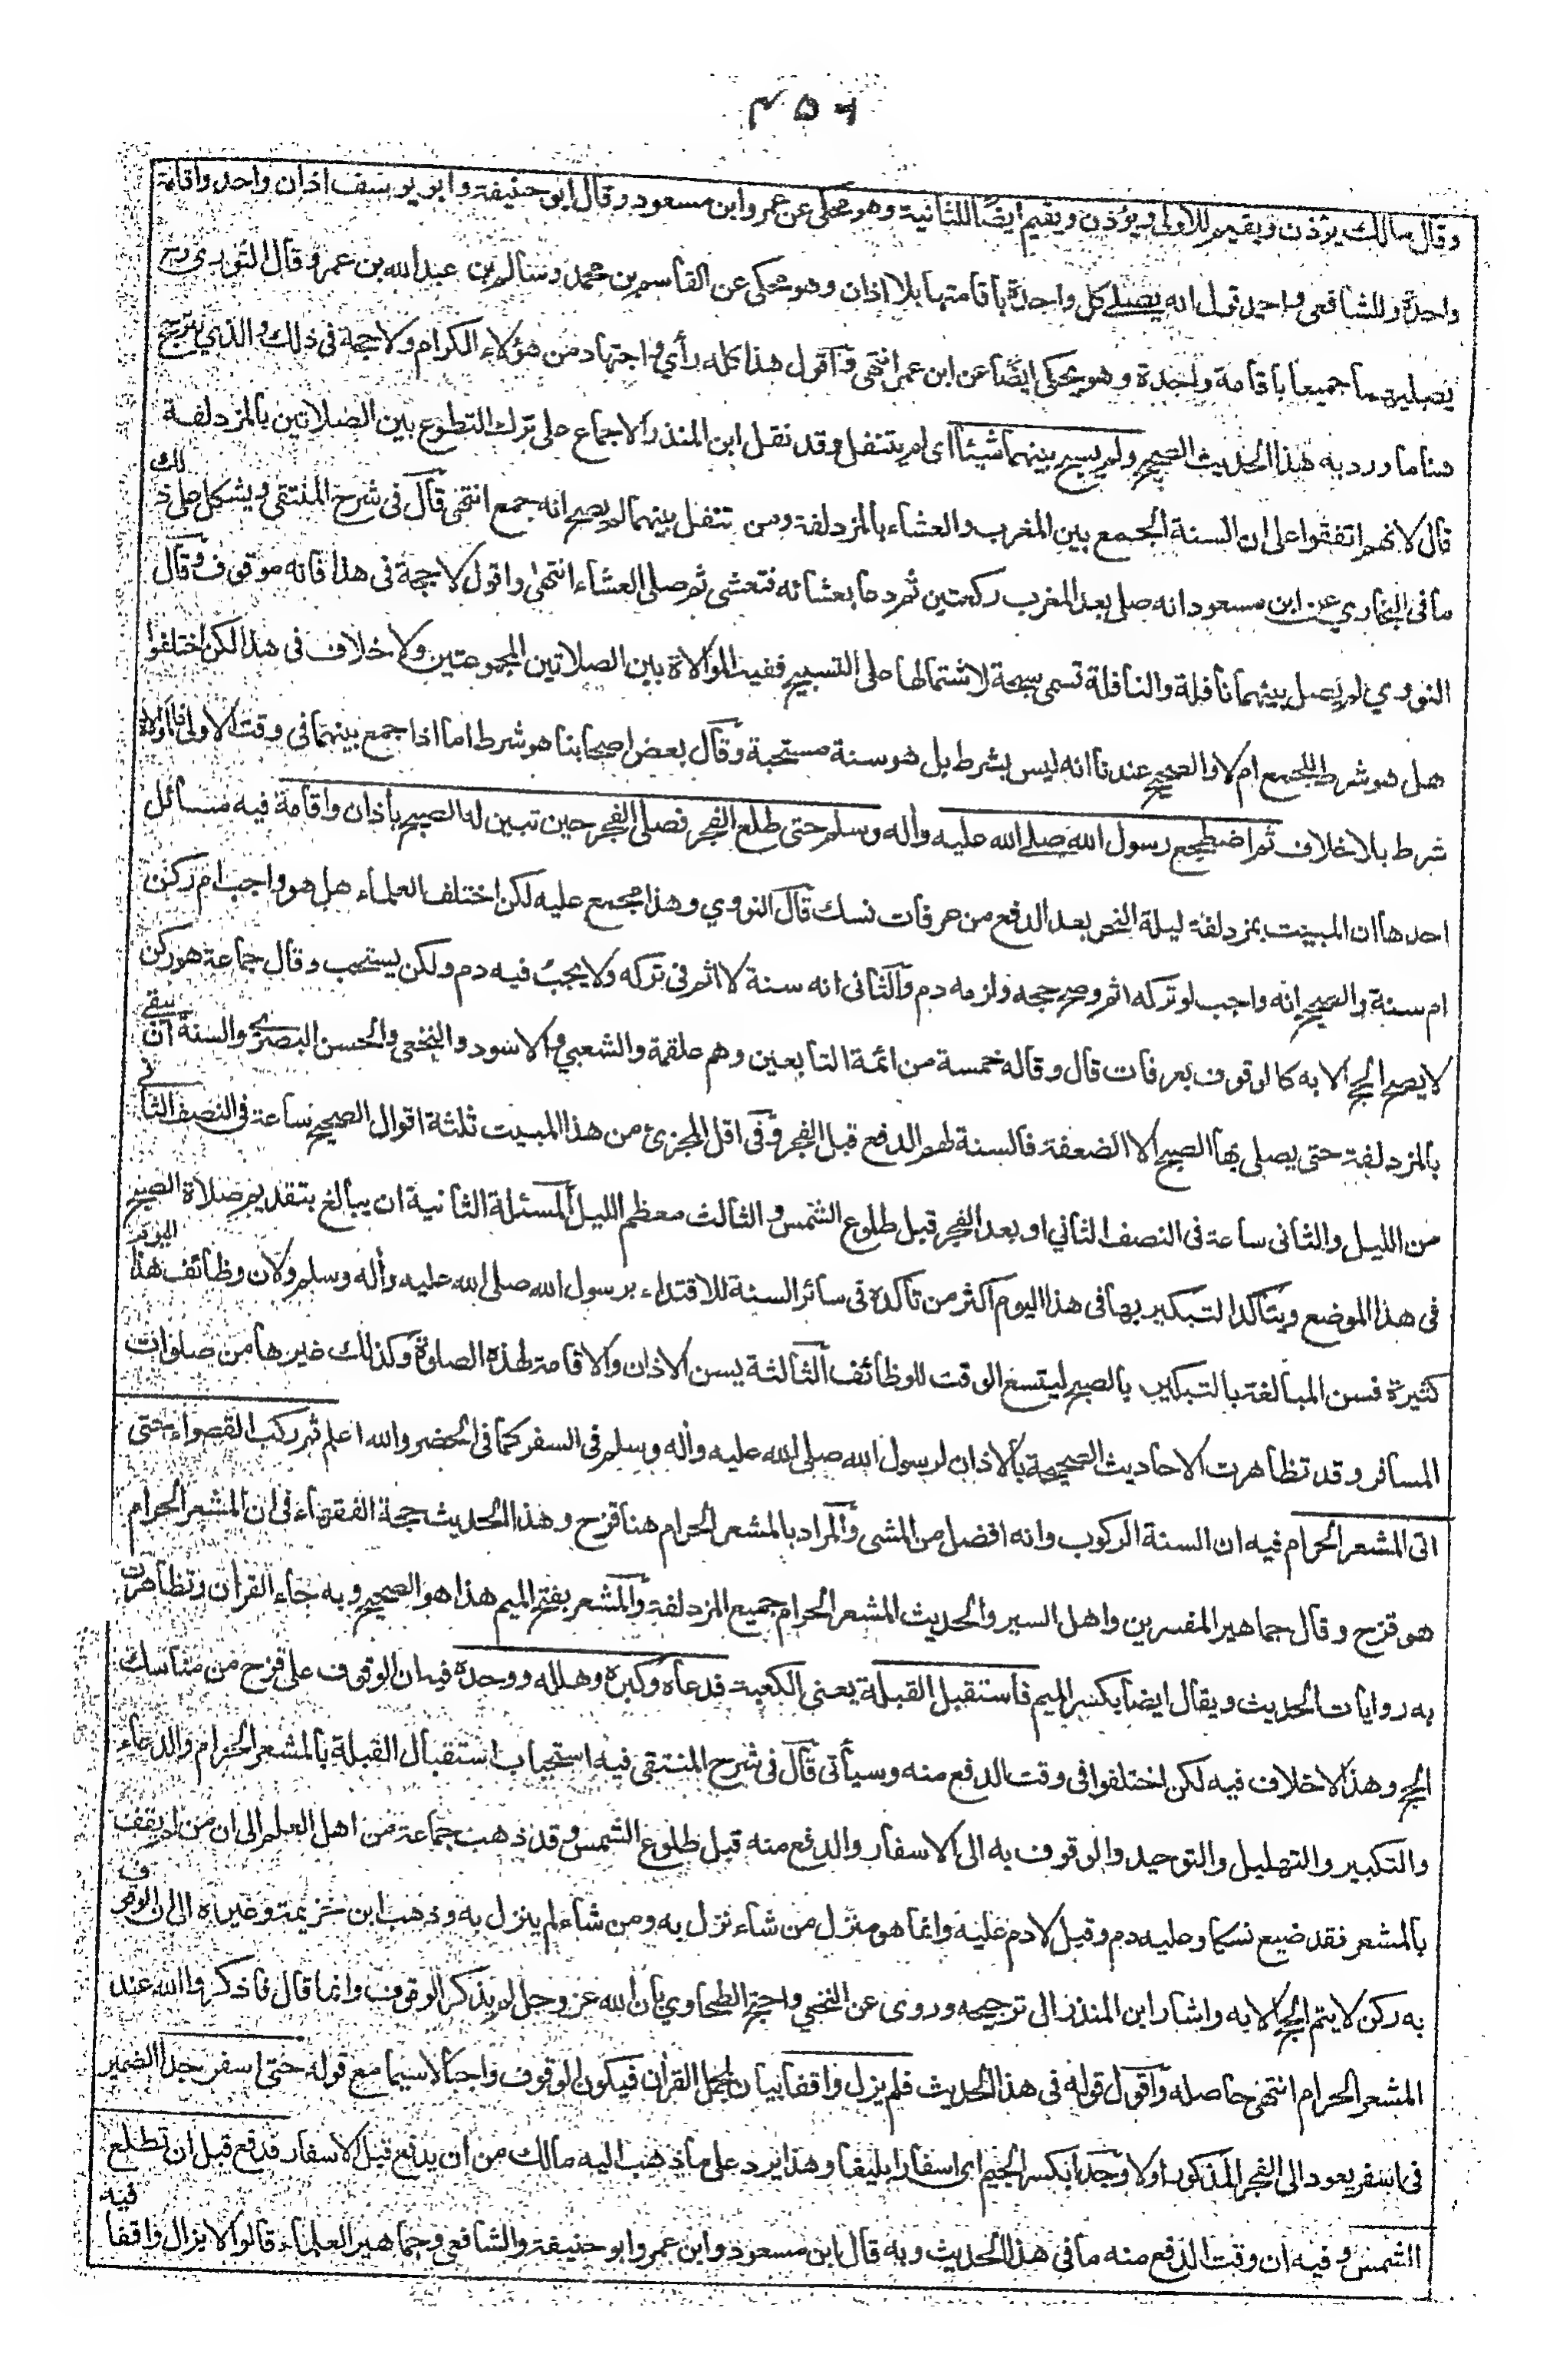 ٤٥٦
وقال مالك يؤذن ويقيم للاولى ويؤذن ويقيم ايضًا للثانية وهو محكى عن عمر وابن مسعود وقال ابو حنيفة وابو يوسف اذان واحد واقامة
واحدة وللشافعى واحمد قول انه يصلى كل واحدة باقامتها بلا اذان وهو محكى عن القاسم بن محمد وسالم بن عبد الله بن عمر وقال الثوري
يصليهما جميعا باقامة واحدة وهو يحكى ايضًا عن ابن عمر انتهى واقول هذا كله رأي واجتهاد من هؤلاء الكرام ولا حجة فى ذلك والذي يترجح
هنا ما ورد به هذا الحديث الصحيح ولم يسبح بينهما شيئا اى لم يتنفل وقد نقل ابن المنذر الاجماع على ترك التطوع بين الصلاتين بالمزدلفة
قال لانهم اتفقوا على ان السنة الجمع بين المغرب والعشاء بالمزدلفة ومن تنفل بينهما لم يصح انه جمع انتهى قال فى شرح المنتقى ويشكل على ذلك
ما فى البخاري عن ابن مسعود انه صلى بعد المغرب ركعتين ثم دعا بعشائه فتعشى ثم صلى العشاء انتهى واقول لا حجة فى هذا فانه موقوف وقال
النووي لم يصل بينهما نافلة والنافلة تسمى سبحة لاشتمالها على التسبيح ففيه الموالاة بين الصلاتين المجموعتين ولا خلاف فى هذا لكن اختلفوا
هل هو شرط للجمع ام لا والصحيح عندنا انه ليس بشرط بل هو سنة مستحبة وقال بعض اصحابنا هو شرط اما اذا جمع بينهما فى وقت الاولى فالموالاة
شرط بلا خلاف ثم اضطجع رسول الله صلى الله عليه وأله وسلم حتى طلع الفجر فصلى الفجر حين تبين له الصبح باذان واقامة فيه مسائل
احدها ان المبيت بمزدلفة ليلة النحر بعد الدفع من عرفات نسك قال النووي وهذا مجمع عليه لكن اختلف العلماء هل هو واجب ام ركن
ام سنة والصحيح انه واجب لو تركه اثم وصح حجه ولزمه دم والثانى انه سنة لا اثم فى تركه ولا يجب فيه دم ولكن يستحب وقال جماعة هو ركن
لا يصح الحج الا به كالوقوف بعرفات قال وقاله خمسة من ائمة التابعين وهم علقمة والشعبي والاسود والنخعى والحسن البصري والسنة ان يبقى
بالمزدلفة حتى يصلى بها الصبح الا الضعفة فالسنة لهم الدفع قبل الفجر وفى اقل المجزئ من هذا المبيت ثلثة اقوال الصحيح ساعة فى النصف الثانى
من الليل والثانى ساعة فى النصف الثاني او بعد الفجر قبل طلوع الشمس والثالث معظم الليل المسئلة الثانية ان يبالغ بتقديم صلاة الصبح
فى هذا الموضع ويتأكد التبكير بها فى هذا اليوم اكثر من تأكده فى سائر السنة للاقتداء برسول الله صلى الله عليه وأله وسلم ولان وظائف هذا اليوم
كثيرة فسن المبالغة بالتبكير بالصبح ليتسع الوقت للوظائف الثالثة يسن الاذان والاقامة لهذه الصلوة وكذلك غيرها من صلوات
المسافر وقد تظاهرت الاحاديث الصحيحة بالاذان لرسول الله صلى الله عليه وأله وسلم فى السفر كما فى الحضر والله اعلم ثم ركب القصواء حتى
اتى المشعر الحرام فيه ان السنة الركوب وانه افضل من المشى والمراد بالمشعر الحرام هنا قزح وهذا الحديث حجة الفقهاء فى ان المشعر الحرام
هو قزح وقال جماهير المفسرين واهل السير والحديث المشعر الحرام جميع المزدلفة والمشعر بفتح الميم هذا هو الصحيح وبه جاء القران وتظاهرت
به روايات الحديث ويقال ايضا بكسر الميم فاستقبل القبلة يعنى الكعبة فدعاه وكبره وهلله ووحده فيه ان الوقوف على قزح من مناسك
الحج وهذا لا خلاف فيه لكن اختلفوا فى وقت الدفع منه وسيأتى قال فى شرح المنتقى فيه استحباب استقبال القبلة بالمشعر الحرام والدعاء
والتكبير والتهليل والتوحيد والوقوف به الى الاسفار والدفع منه قبل طلوع الشمس وقد ذهب جماعة من اهل العلم الى ان من لم يقف
بالمشعر فقد ضيع نسكا وعليه دم وقيل لا دم عليه وانما هو منزل من شاء نزل به ومن شاء لم ينزل به وذهب ابن خزيمة وغيره الى ان الوقوف
به ركن لا يتم الحج الا به واشار ابن المنذر الى ترجيحه وروى عن النخعي واحتج الطحاوي بان الله عز وجل لم يذكر الوقوف وانما قال فاذكروا الله عند
المشعر الحرام انتهى حاصله واقول قوله فى هذا الحديث فلم يزل واقفا بيان لمجمل القرأن فيكون الوقوف واجبا لاسيما مع قوله حتى اسفر جدا الضمير
فى اسفر يعود الى الفجر المذكور اولا وجدا بكسر الجيم اى اسفارا بليغا وهذا يرد على ما ذهب اليه مالك من ان يدفع قبل الاسفار فدفع قبل ان تطلع
الشمس وفيه ان وقت الدفع منه ما فى هذا الحديث وبه قال ابن مسعود وابن عمر وابو حنيفة والشافعى وجماهير العلماء قالوا لا يزال واقفا فيه